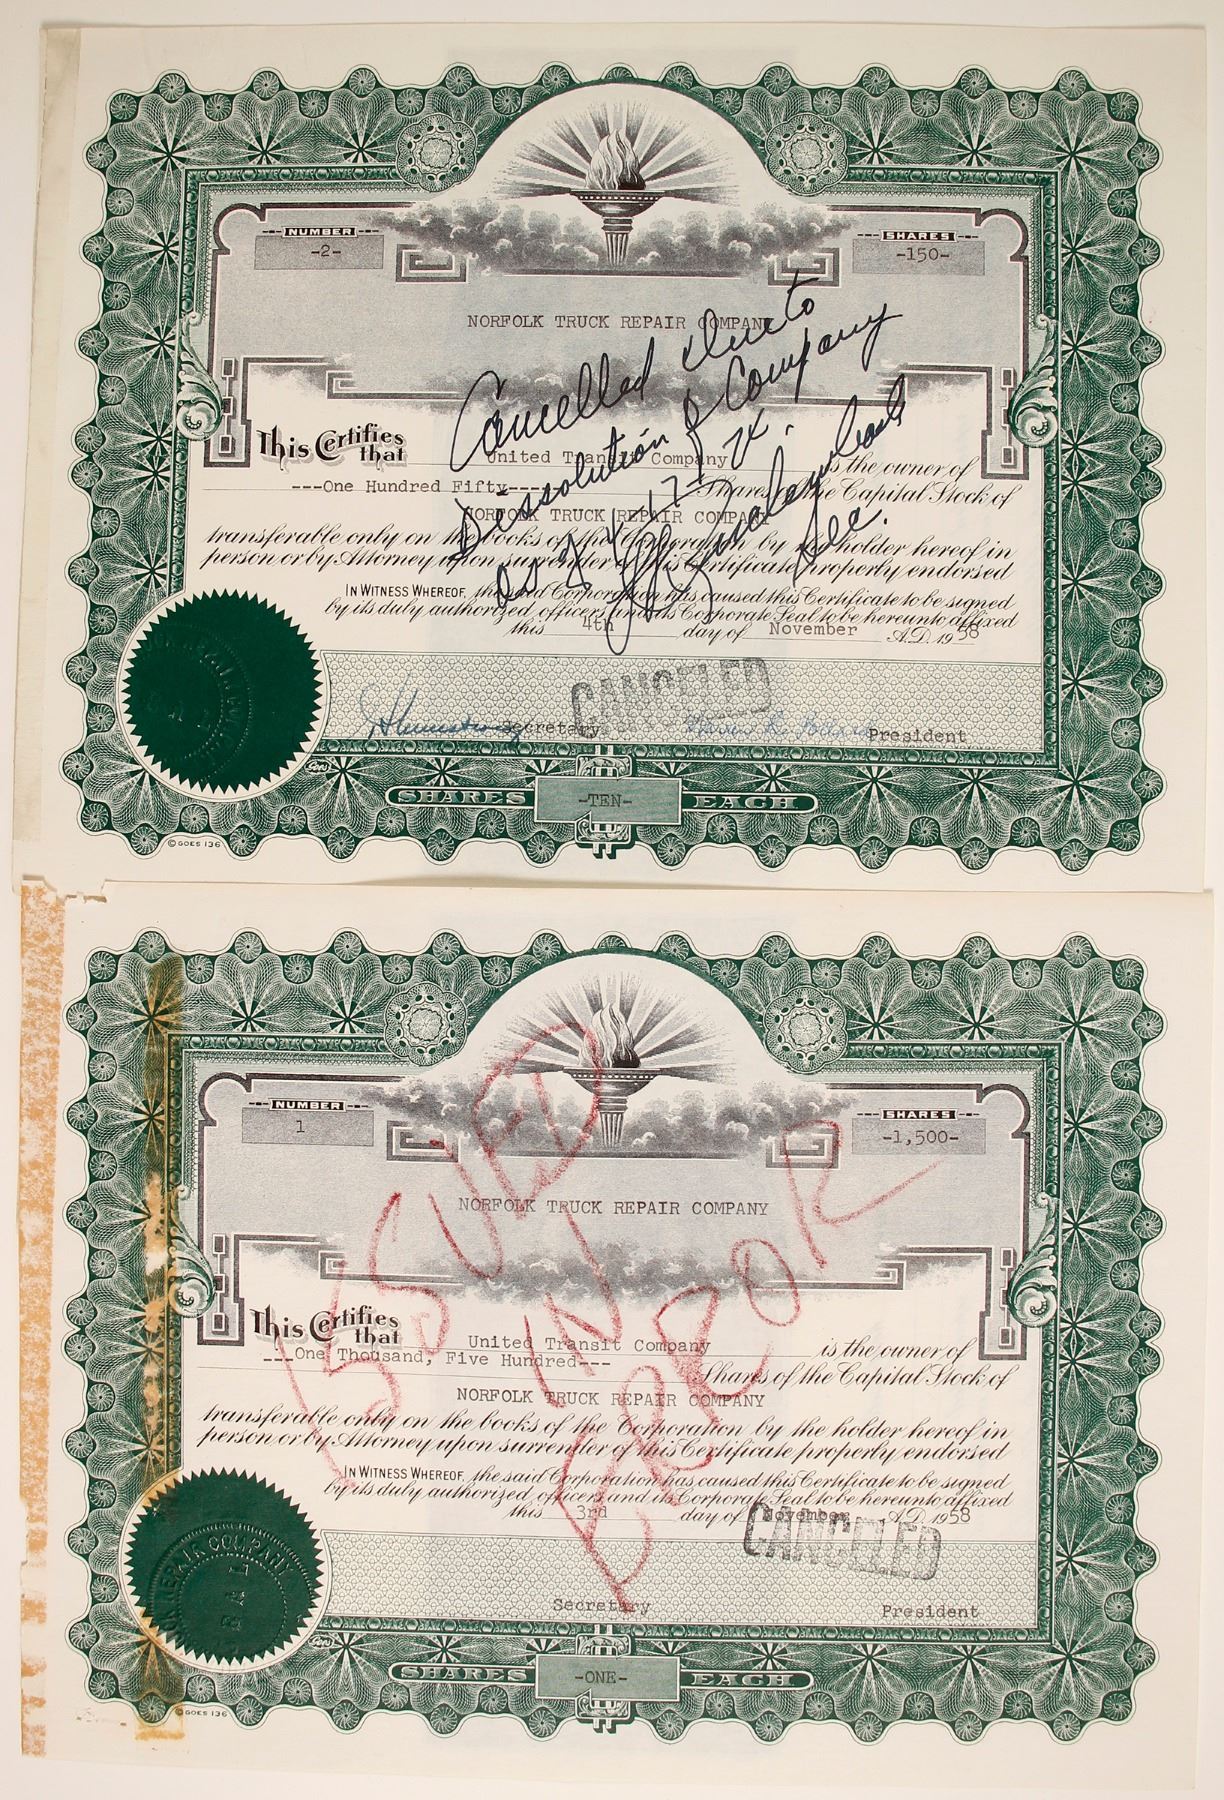 NUMBER
-2-
SHARES
-150-
NORFOLK TRUCK REPAIR COMPANY
Cancelled due to
Dissolution of Company
as of
Sec.
This Certifies that
United Transit Company is the owner of
---One Hundred Fifty--- Shares of the Capital Stock of
NORFOLK TRUCK REPAIR COMPANY
transferable only on the books of the Corporation by the holder hereof in
person or by Attorney upon surrender of this Certificate properly endorsed
IN WITNESS WHEREOF, the said Corporation has caused this Certificate to be signed
by its duly authorized officers and its Corporate Seal to be hereunto affixed
this 4th day of November A.D. 1958
CANCELED
Secretary
President
SHARES -TEN- EACH
©GOES 136
NUMBER
1
SHARES
-1,500-
NORFOLK TRUCK REPAIR COMPANY
ISSUED
IN
ERROR
This Certifies that
United Transit Company is the owner of
---One Thousand, Five Hundred--- Shares of the Capital Stock of
NORFOLK TRUCK REPAIR COMPANY
transferable only on the books of the Corporation by the holder hereof in
person or by Attorney upon surrender of this Certificate properly endorsed
IN WITNESS WHEREOF, the said Corporation has caused this Certificate to be signed
by its duly authorized officers and its Corporate Seal to be hereunto affixed
this 3rd day of November A.D. 1958
CANCELED
REPAIR COMPANY
SEAL
Secretary
President
SHARES -ONE- EACH
©GOES 136